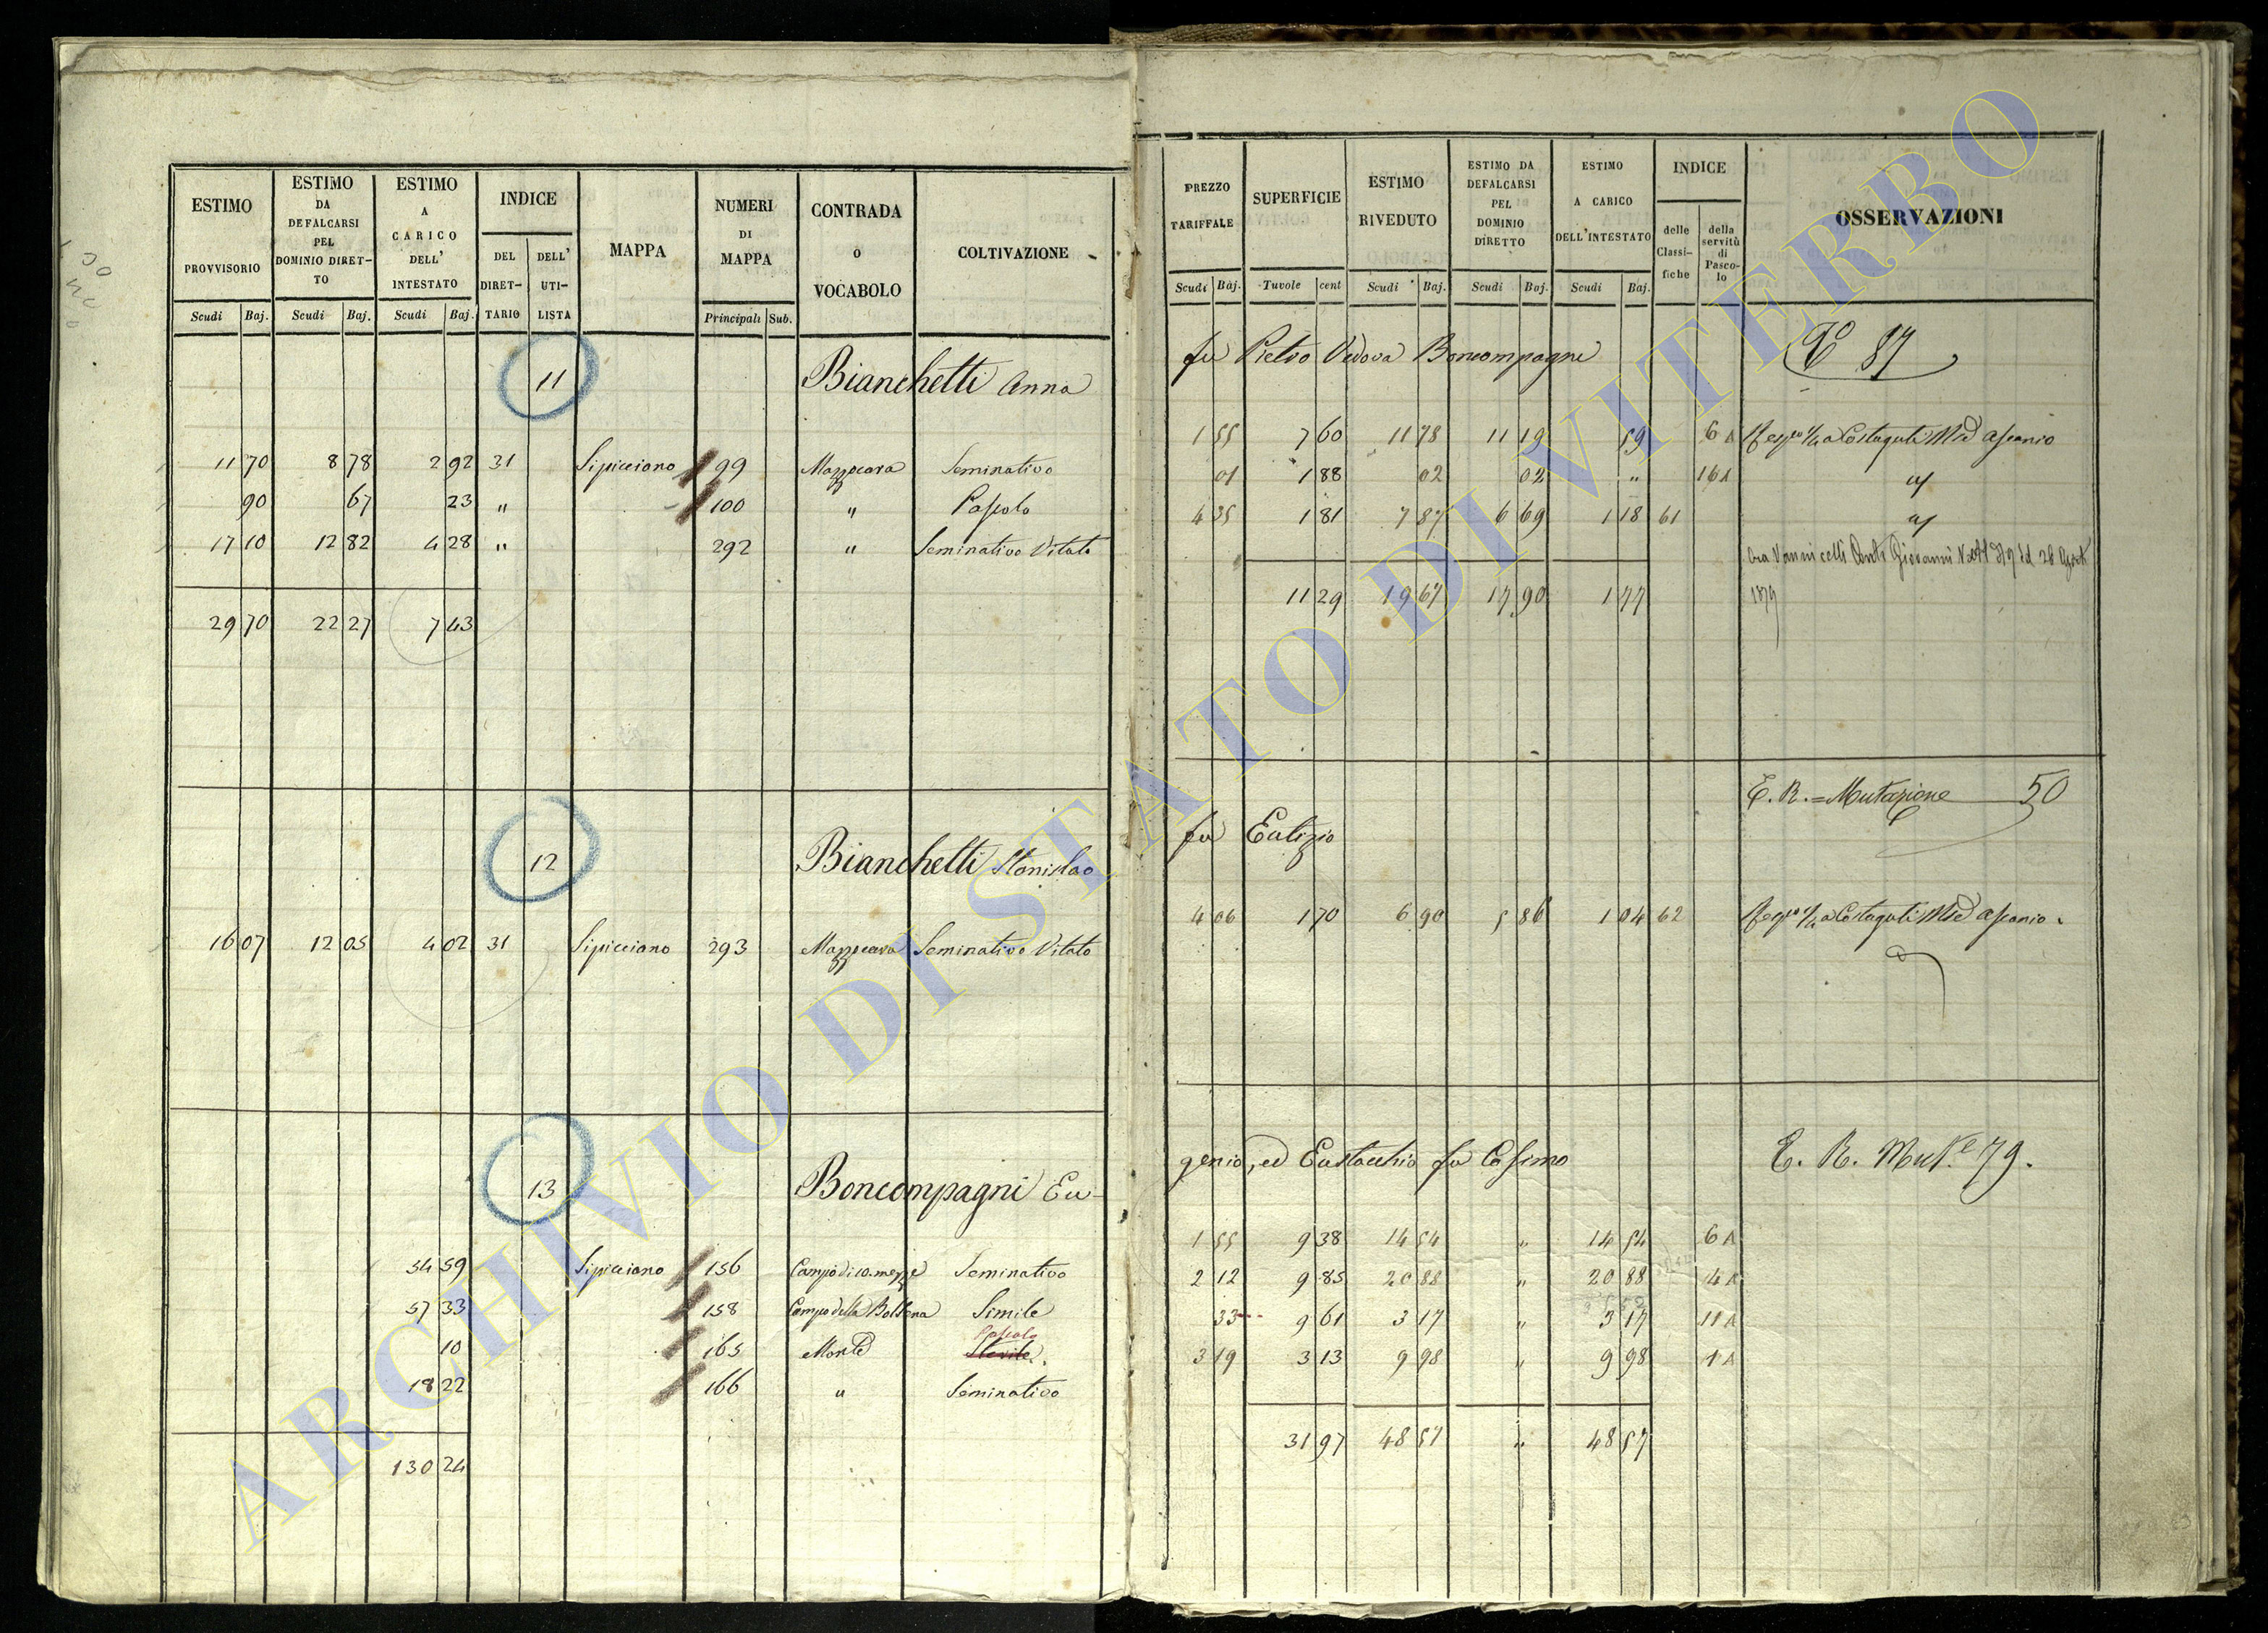 ESTIMO PROVVISORIO
ESTIMO DA DEFALCARSI PEL DOMINIO DIRET-TO
ESTIMO A CARICO DELL' INTESTATO
INDICE
DEL DIRET-TARIO
DELL' UTI-LISTA
MAPPA
NUMERI DI MAPPA
CONTRADA O VOCABOLO
COLTIVAZIONE
Scudi Baj. Scudi Baj. Scudi Baj. Principali Sub.
11 Bianchetti Anna
11 70 8 78 2 92 31 Sipicciano 99 Mazzocara Seminativo
90 67 23 " 100 " Pascolo
17 10 12 82 4 28 " 292 " Seminativo Vitato
29 70 22 27 7 43
12 Bianchetti Stanislao
16 07 12 05 4 02 31 Sipicciano 293 Mazzocara Seminativo Vitato
13 Boncompagni Eu-
54 59 Sipicciano 156 Campo di 10. mezze Seminativo
57 33 158 Campo della Bolsena Simile
Pascolo
10 165 Monte Sterile
18 22 166 " Seminativo
130 24
PREZZO TARIFFALE
SUPERFICIE
ESTIMO RIVEDUTO
ESTIMO DA DEFALCARSI PEL DOMINIO DIRETTO
ESTIMO A CARICO DELL'INTESTATO
INDICE
delle Classi-fiche
della servitù di Pasco-lo
OSSERVAZIONI
Scudi Baj. Tavole cent Scudi Baj. Scudi Baj. Scudi Baj.
fu Pietro Vedova Boncompagni
87
1 55 7 60 11 78 11 19 59 6 A a Costaguti Ascanio
01 1 88 02 02 " 16 A
4 35 1 81 7 87 6 69 1 18 61
Ora Vannicelli Conti Giovanni 28 Agosto
11 29 19 67 17 90 1 77 1879
E. R. = Mutazione 50
fu Eutizio
4 06 1 70 6 90 5 86 1 04 62 a Costaguti Ascanio.
genio, ed Eustachio fu Cosimo
E. R. Mut.e 79.
1 55 9 38 14 54 " 14 54 6 A
2 12 9 85 20 88 " 20 88 4 A
33 9 61 3 17 " 3 17 11 A
3 19 3 13 9 98 " 9 98 1 A
31 97 48 57 " 48 57
ARCHIVIO DI STATO DI VITERBO